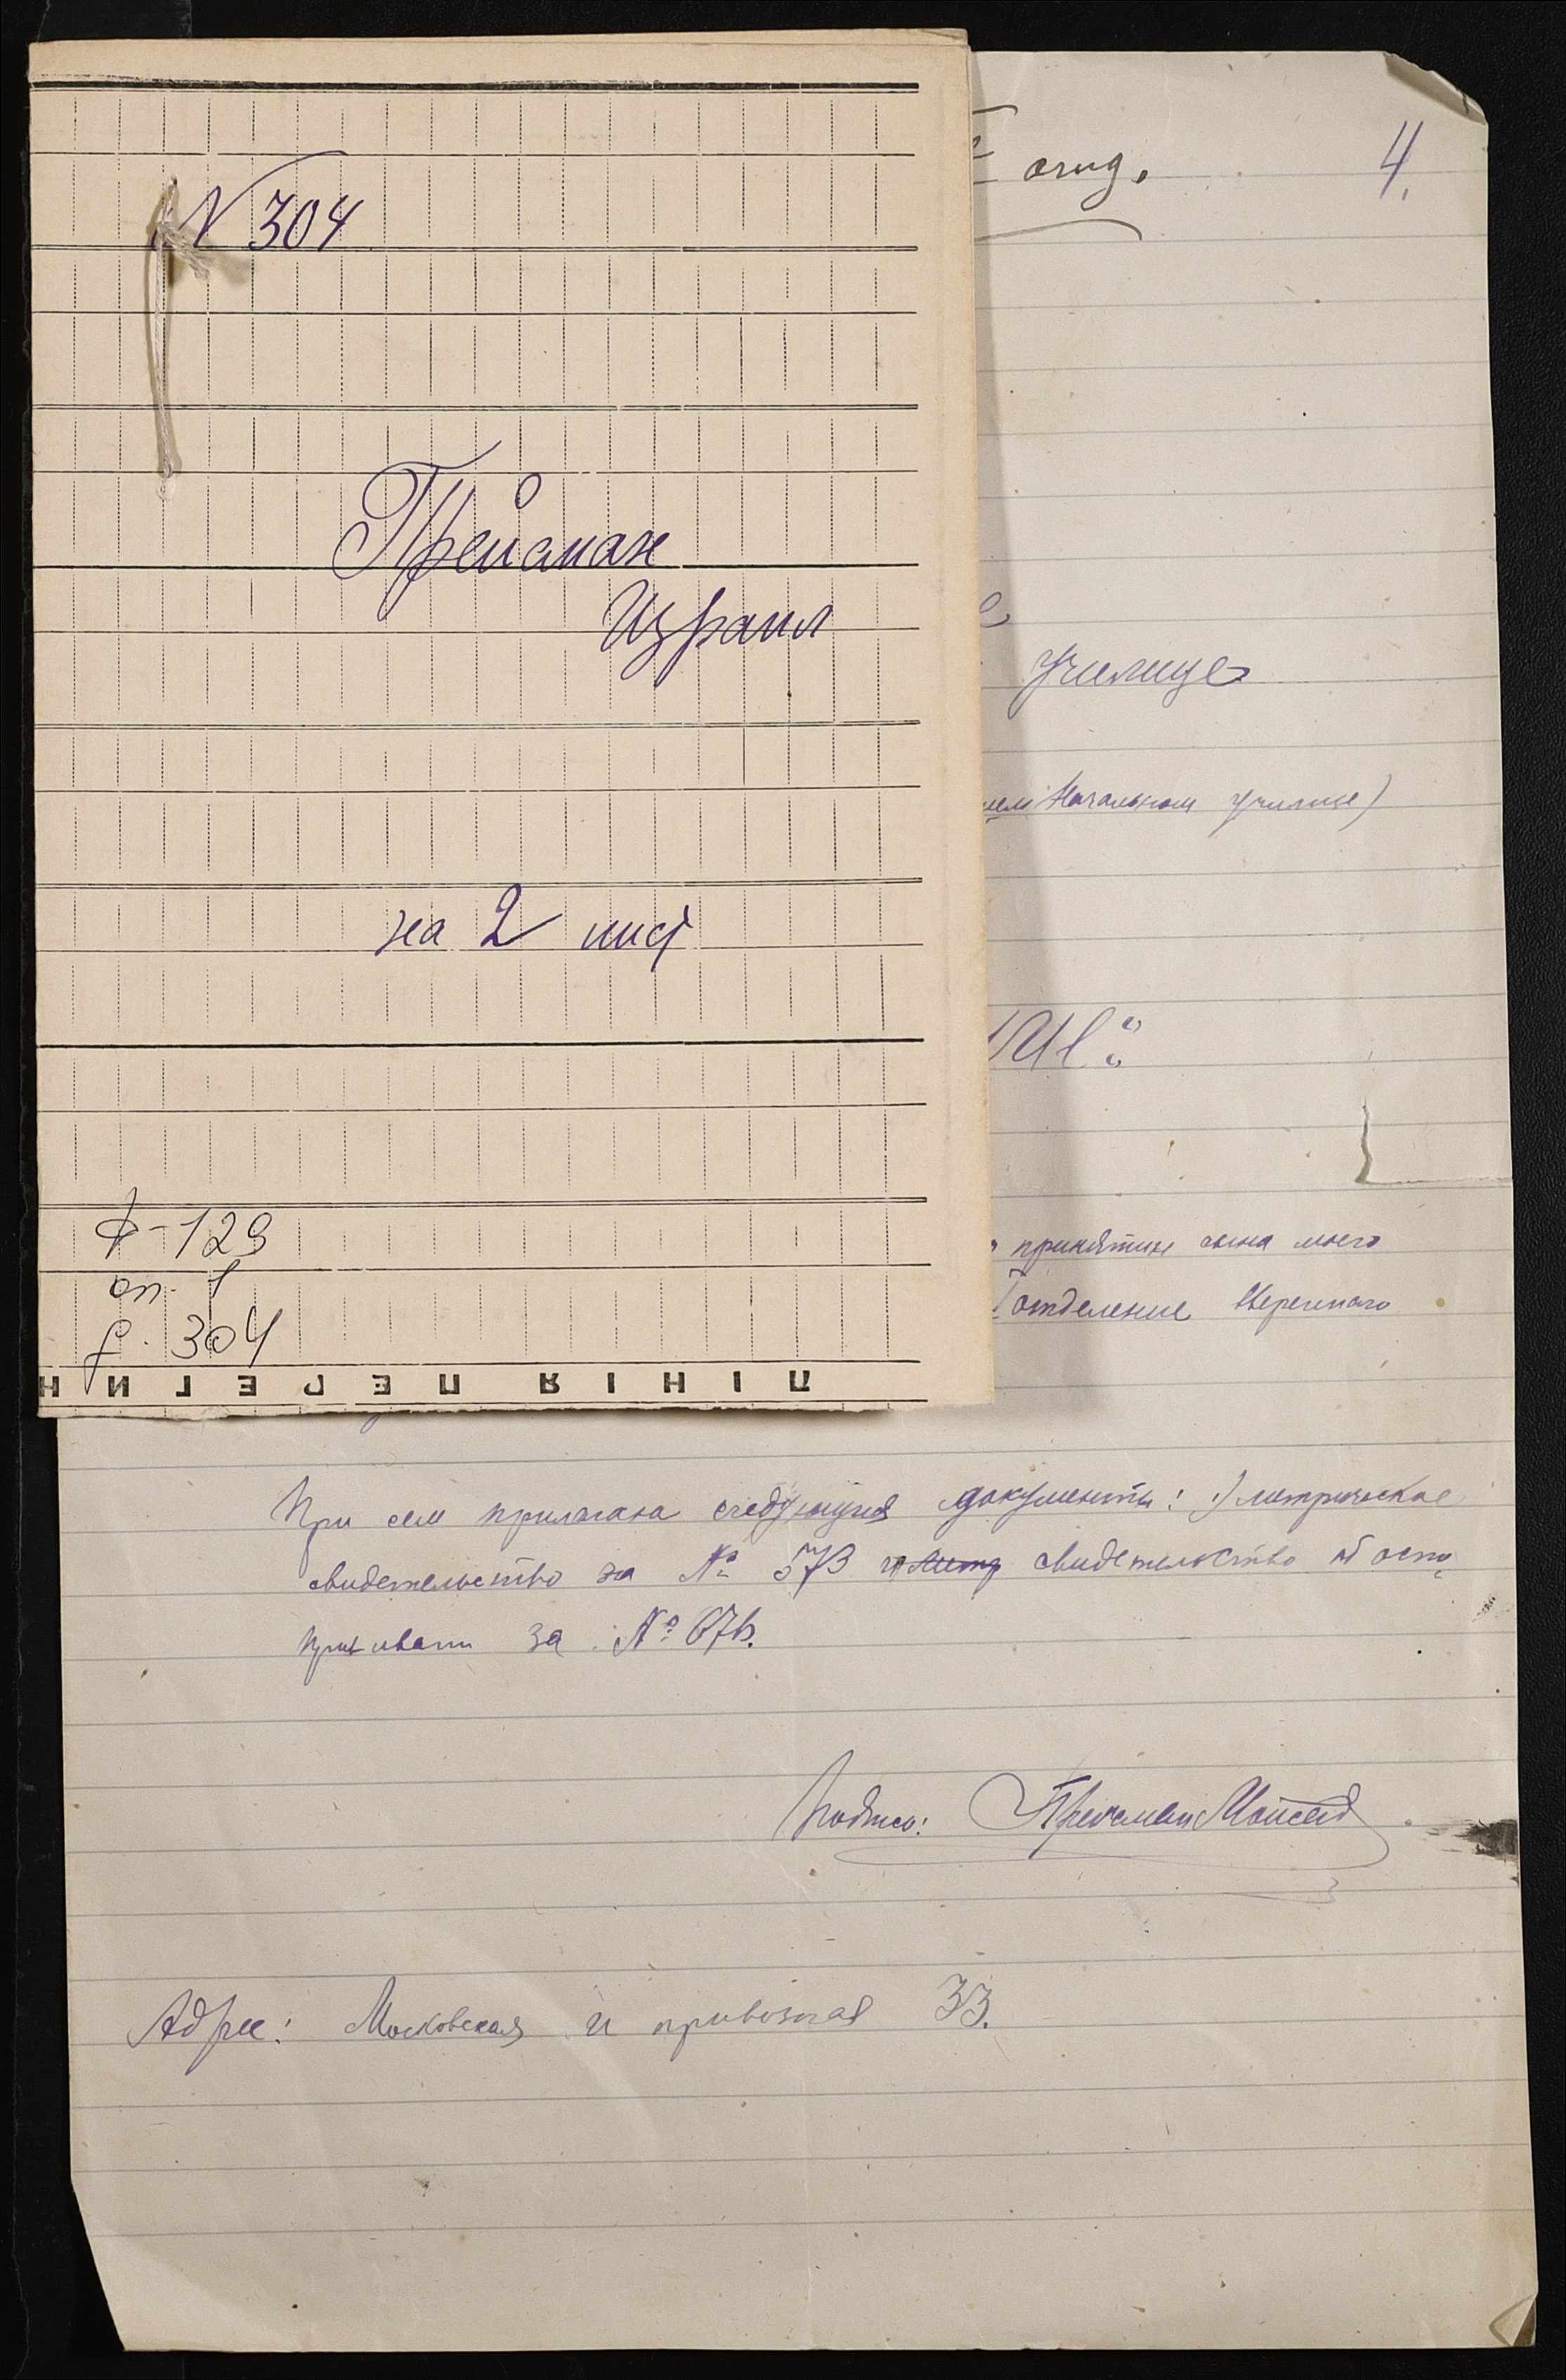 N 304
Прейсман
Израил
на 2 лист
ф-129
оп. 1
д. 304
ЛІНІЯ ПЕРЕГИН
отд.
4.
училище
Начальном училище)
принятии сына моего
отделение вверенного
При сем прилагаю следующия документы: 1) метрическое
свидетельство за № 573 свидетельство об оспо
прививании за № 67
Подпись: Моисей
Адрес: Московская и привозная 33.